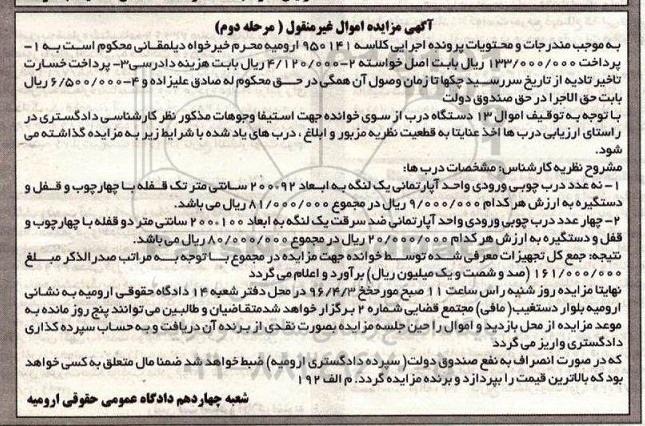 آگهی مزایده اموال غیرمنقول ( مرحله دوم)
به موجب مندرجات و محتویات پرونده اجرایی کلاسه ۹۵۰۱۴۱ ارومیه محرم خیرخواه دیلمقانی محکوم است به ۱-
پرداخت ۱۳۳/۰۰۰/۰۰۰ ریال بابت اصل خواسته ۲-۴/۱۲۰/۰۰۰ ریال بابت هزینه دادرسی ۳- پرداخت خسارت
تاخیر تادیه از تاریخ سررسید چکها تا زمان وصول آن همگی در حق محکوم له صادق علیزاده و ۴-۶/۵۰۰/۰۰۰ ریال
بابت حق الاجرا در حق صندوق دولت
با توجه به توقیف اموال ۱۳ دستگاه درب از سوی خوانده جهت استیفا وجوهات مذکور نظر کارشناسی دادگستری در
راستای ارزیابی درب ها اخذ عنایتا به قطعیت نظریه مزبور و ابلاغ ، درب های یاد شده با شرایط زیر به مزایده گذاشته می
شود.
مشروح نظریه کارشناس: مشخصات درب ها:
۱- نه عدد درب چوبی ورودی واحد آپارتمانی یک لنگه به ابعاد ۹۲*۲۰۰ سانتی متر تک قفله با چهارچوب و قفل و
دستگیره به ارزش هر کدام ۹/۰۰۰/۰۰۰ ریال در مجموع ۸۱/۰۰۰/۰۰۰ ریال می باشد.
۲- چهار عدد درب چوبی ورودی واحد آپارتمانی ضد سرقت یک لنگه به ابعاد ۱۰۰*۲۰۰ سانتی متر دو قفله با چهارچوب و
قفل و دستگیره به ارزش هر کدام ۲۰/۰۰۰/۰۰۰ ریال در مجموع ۸۰/۰۰۰/۰۰۰ ریال می باشد.
نتیجه: جمع کل تجهیزات معرفی شده توسط خوانده جهت مزایده در مجموع با توجه به مراتب صدرالذکر مبلغ
۱۶۱/۰۰۰/۰۰۰ (صد و شصت و یک میلیون ریال) برآورد و اعلام می گردد
نهایتا مزایده روز شنبه راس ساعت ۱۱ صبح مورخخ ۹۶/۴/۳ در محل دفتر شعبه ۱۴ دادگاه حقوقی ارومیه به نشانی
ارومیه بلوار دستغیب( مافی) مجتمع قضایی شماره ۲ برگزار خواهد شد متقاضیان و طالبین می توانند پنج روز مانده به
موعد مزایده از محل بازدید و اموال را حین جلسه مزایده بصورت نقدی از برنده آن دریافت و به حساب سپرده گذاری
دادگستری واریز می گردد
که در صورت انصراف به نفع صندوق دولت( سپرده دادگستری ارومیه) ضبط خواهد شد ضمنا مال متعلق به کسی خواهد
بود که بالاترین قیمت را بپردازد و برنده مزایده گردد. م الف ۱۹۲
شعبه چهاردهم دادگاه عمومی حقوقی ارومیه